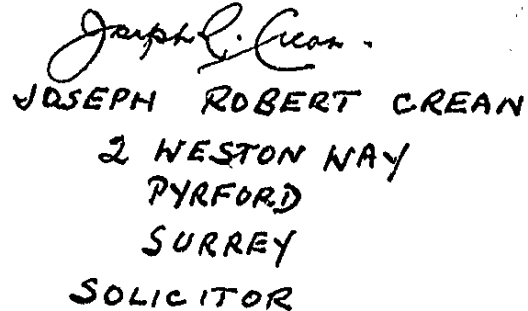 Joseph R. Crean.
JOSEPH ROBERT CREAN
2 WESTON WAY
PYRFORD
SURREY
SOLICITOR